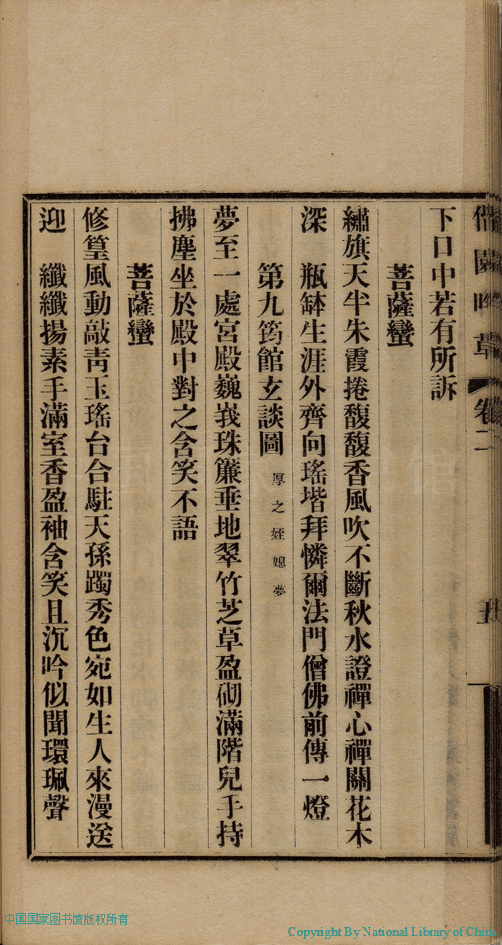 園吟草 卷二
下口中若有所訴
菩薩蠻
繡旗天半朱霞捲馥馥香風吹不斷秋水證禪心禪關花木
深　瓶缽生涯外齊向瑤堦拜憐爾法門僧佛前傳一燈
第九筠館玄談圖 厚之姪媳夢
夢至一處宮殿巍峩珠簾垂地翠竹芝草盈砌滿階兒手持
拂塵坐於殿中對之含笑不語
菩薩蠻
修篁風動敲靑玉瑤台合駐天孫躅秀色宛如生人來漫送
迎　纖纖揚素手滿室香盈袖含笑且沉吟似聞環珮聲
中国国家图书馆版权所有
Copyright By National Library of China